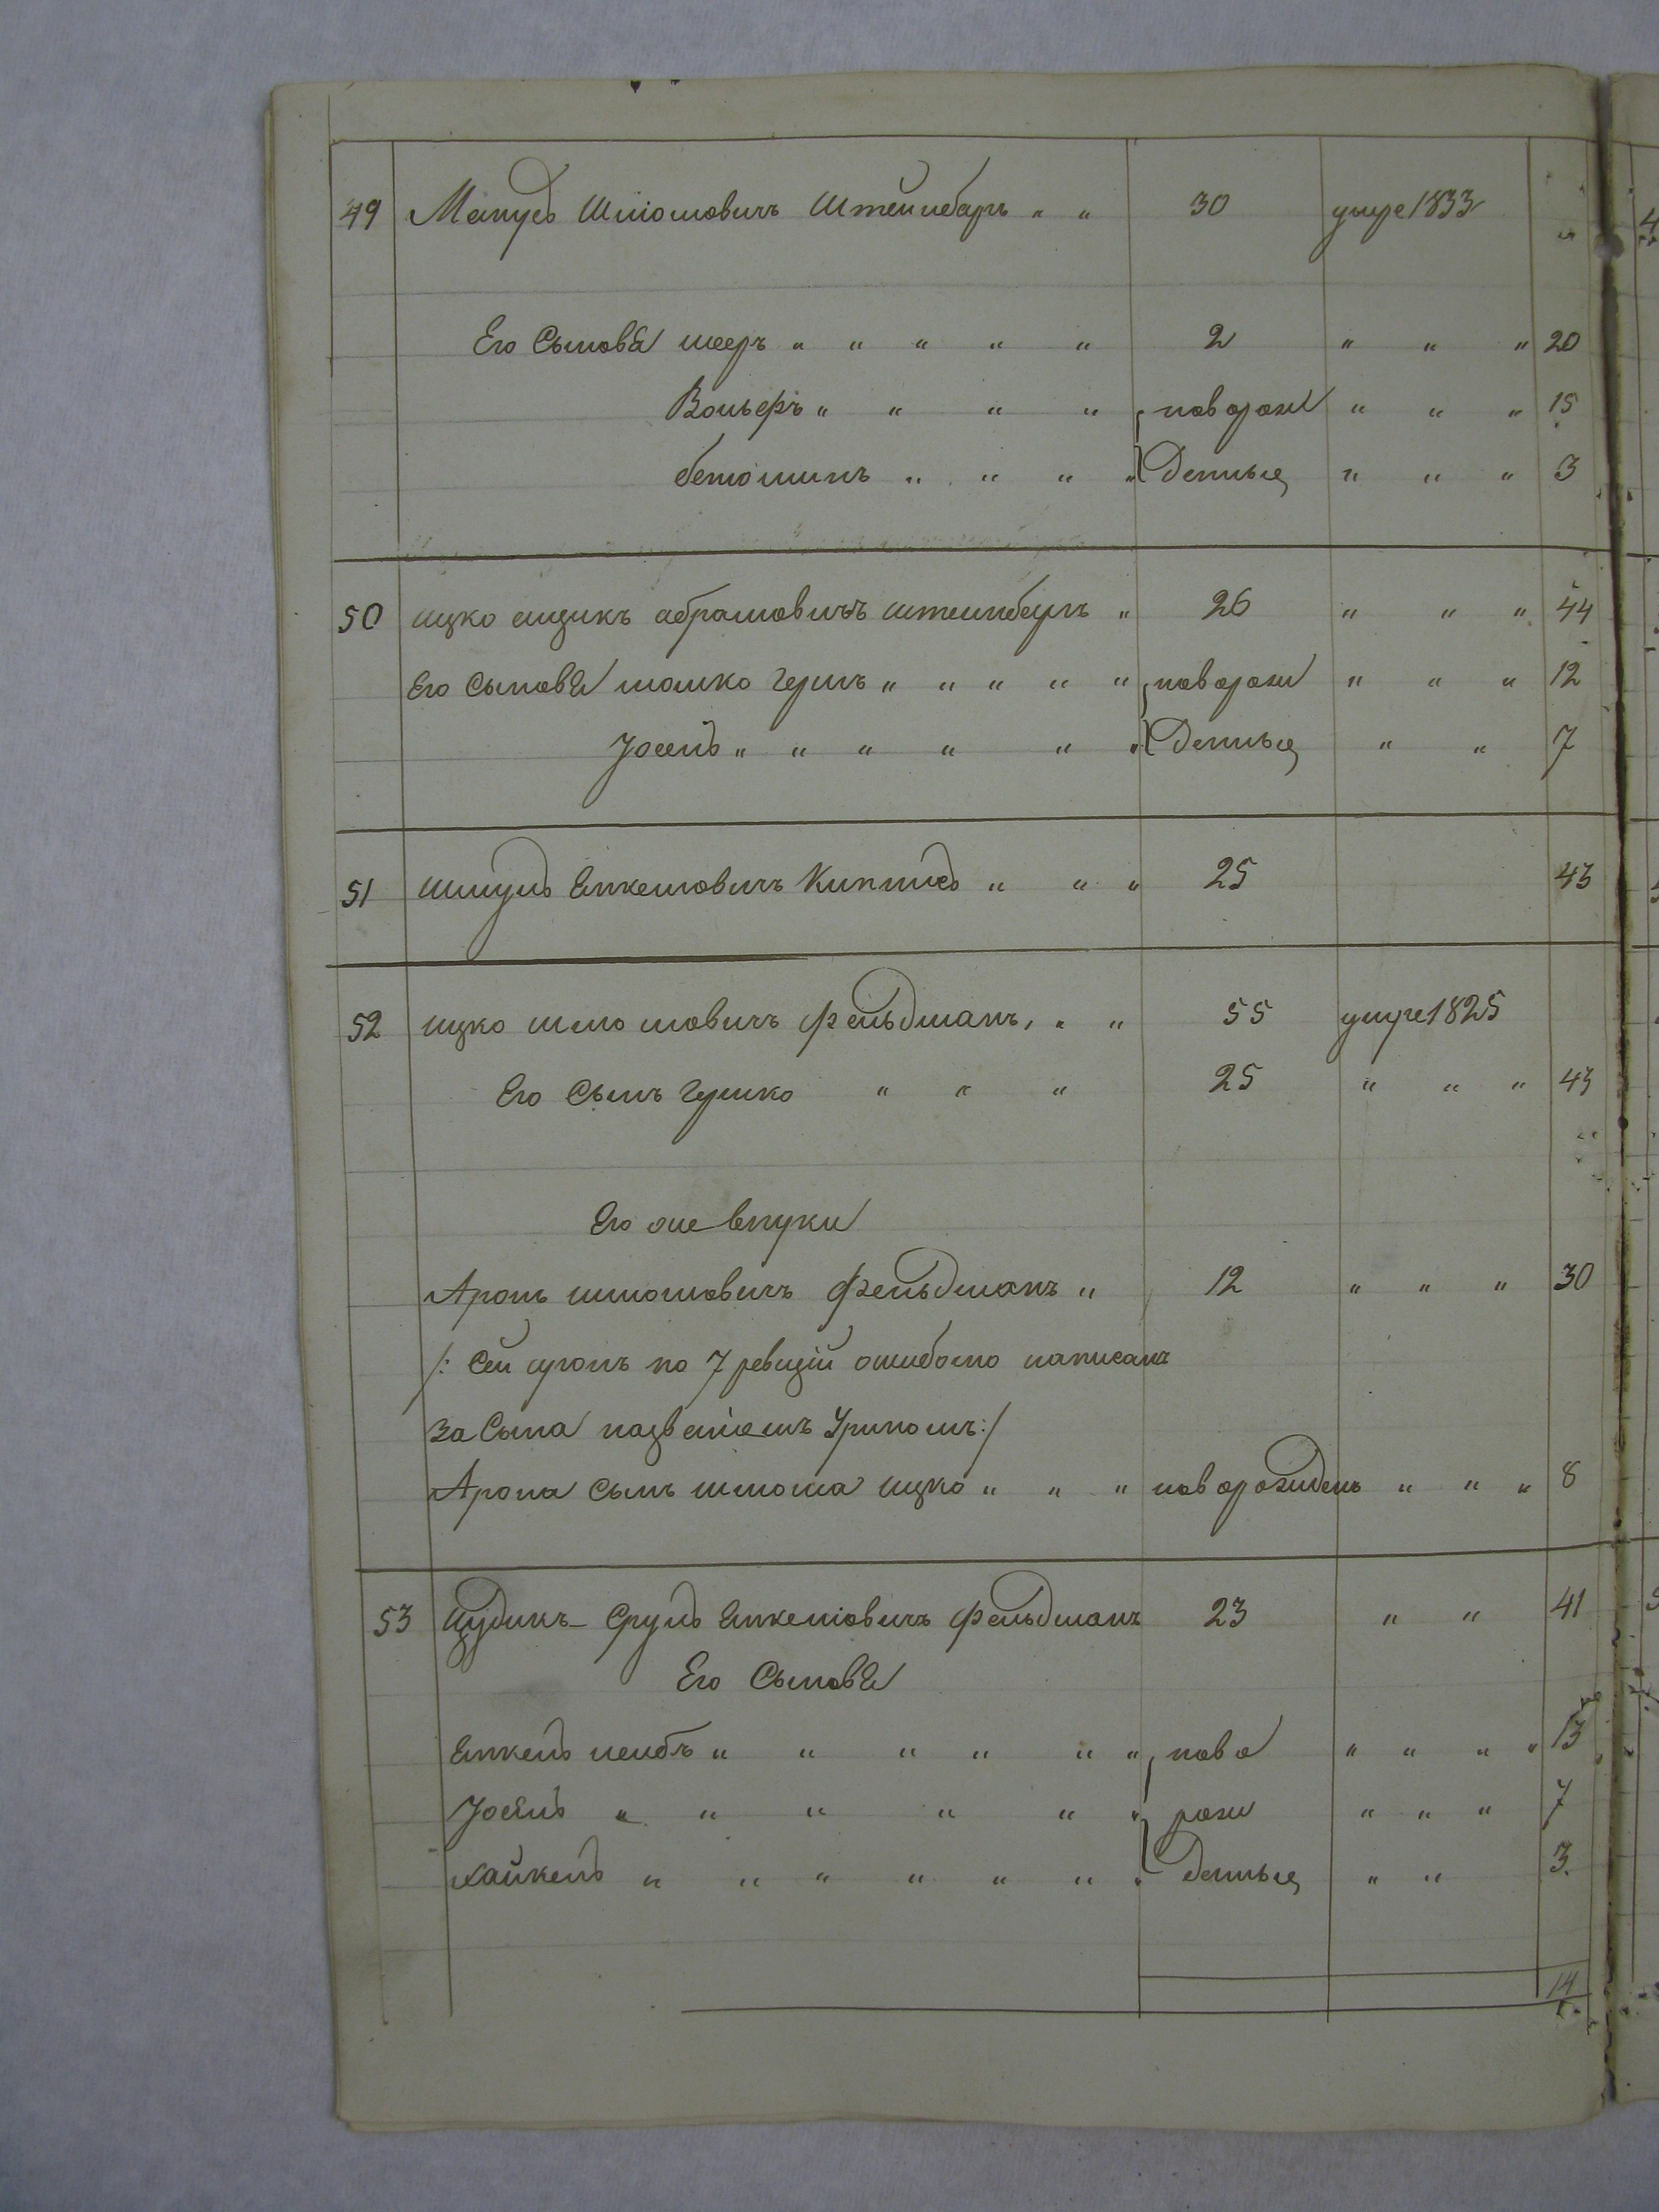 49 Манусъ Шліомовичъ Штейнбаръ " " 30 умре 1833 "
Его Сыновя мееръ " " " " " 2 " " " 20
Вольфъ " " " " новорож " " " 15
беніоминъ " " " " Денные " " " 3
50 ицко аизикъ абрамовичъ штеинбергъ " 26 " " " 44
Его Сыновя мошко гершъ " " " " " новорож " " " 12
Іосель " " " " " " Денные " " 7
51 шмуль Янкелиовичъ Кипнисъ " " " 25 43
52 ицко шлiомовичъ фельдманъ " " " 55 умре 1825
Его Сынъ гершко " " " 25 " " " 43
Его же внуки
Аронъ шлиомовичъ Фельдманъ " 12 " " " 30
/: Сей аронъ по 7 ревизіи ошибочно написанъ
За Сына названіемъ Уриномъ :/
Арона Сынъ шлиома ицко " " " новорожденъ " " " 8
53 Цудикъ - Сруль Янкеліовичъ Фельдманъ 23 " " 41
Его Сыновя
Янкель лейбъ " " " " " " ново " " " " 13
Іосель " " " " " " рож " " " 7
хайкель " " " " " " " Денные " " 3
14